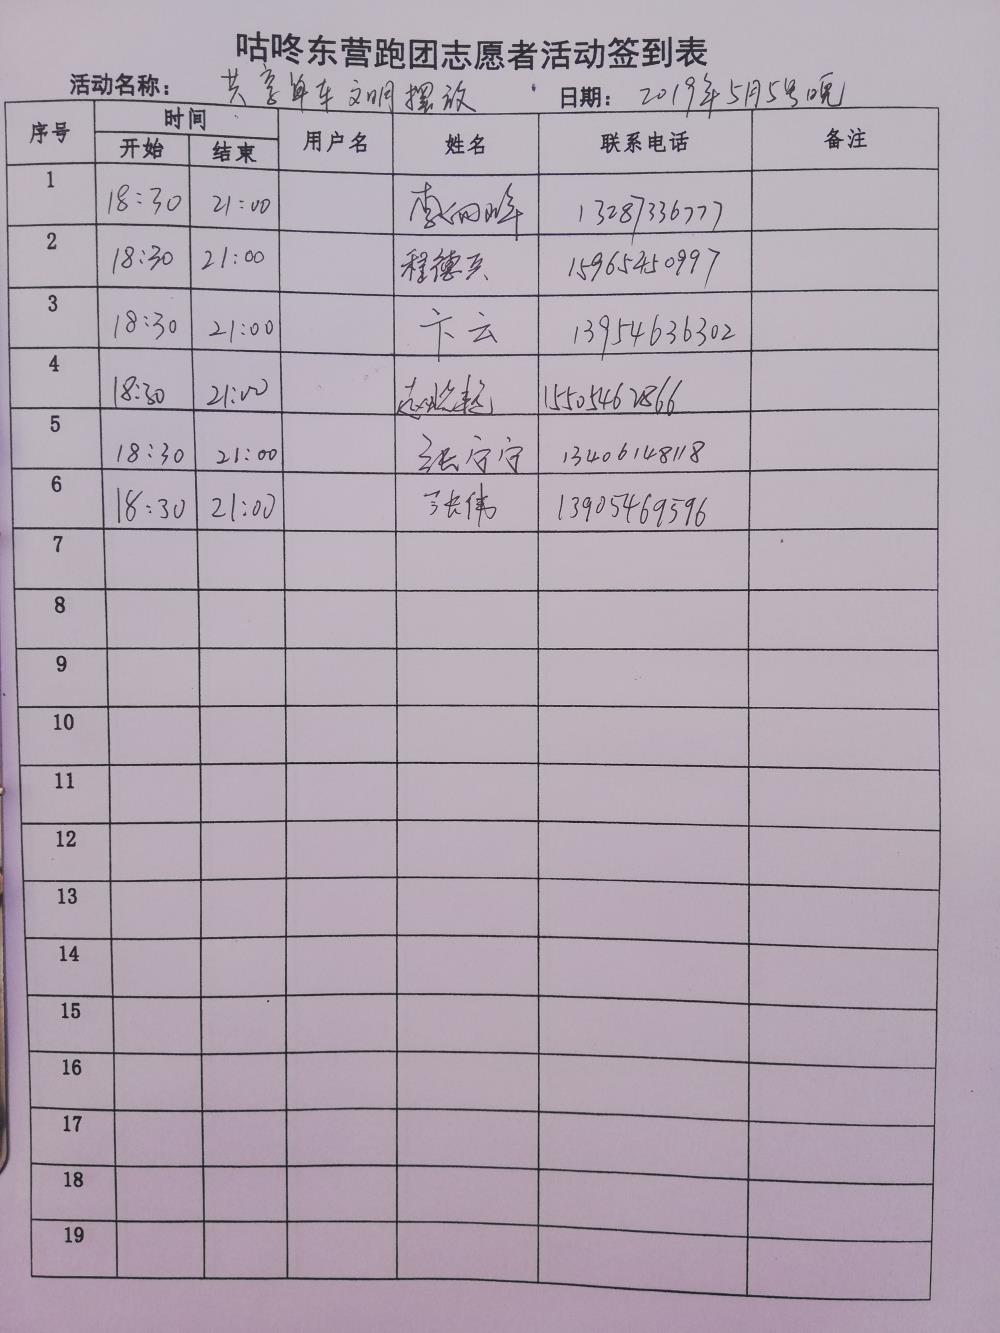 咕咚东营跑团志愿者活动签到表
活动名称： 共享单车文明摆放 日期： 2019年5月5号晚
序号 时间 用户名 姓名 联系电话 备注
开始 结束
1 18:30 21:00 13287336777
2 18:30 21:00 程德兵 15965450997
3 18:30 21:00 卞云 13954636302
4 18:30 21:00 15505462866
5 18:30 21:00 张守守 13406148118
6 18:30 21:00 张伟 13905469596
7
8
9
10
11
12
13
14
15
16
17
18
19